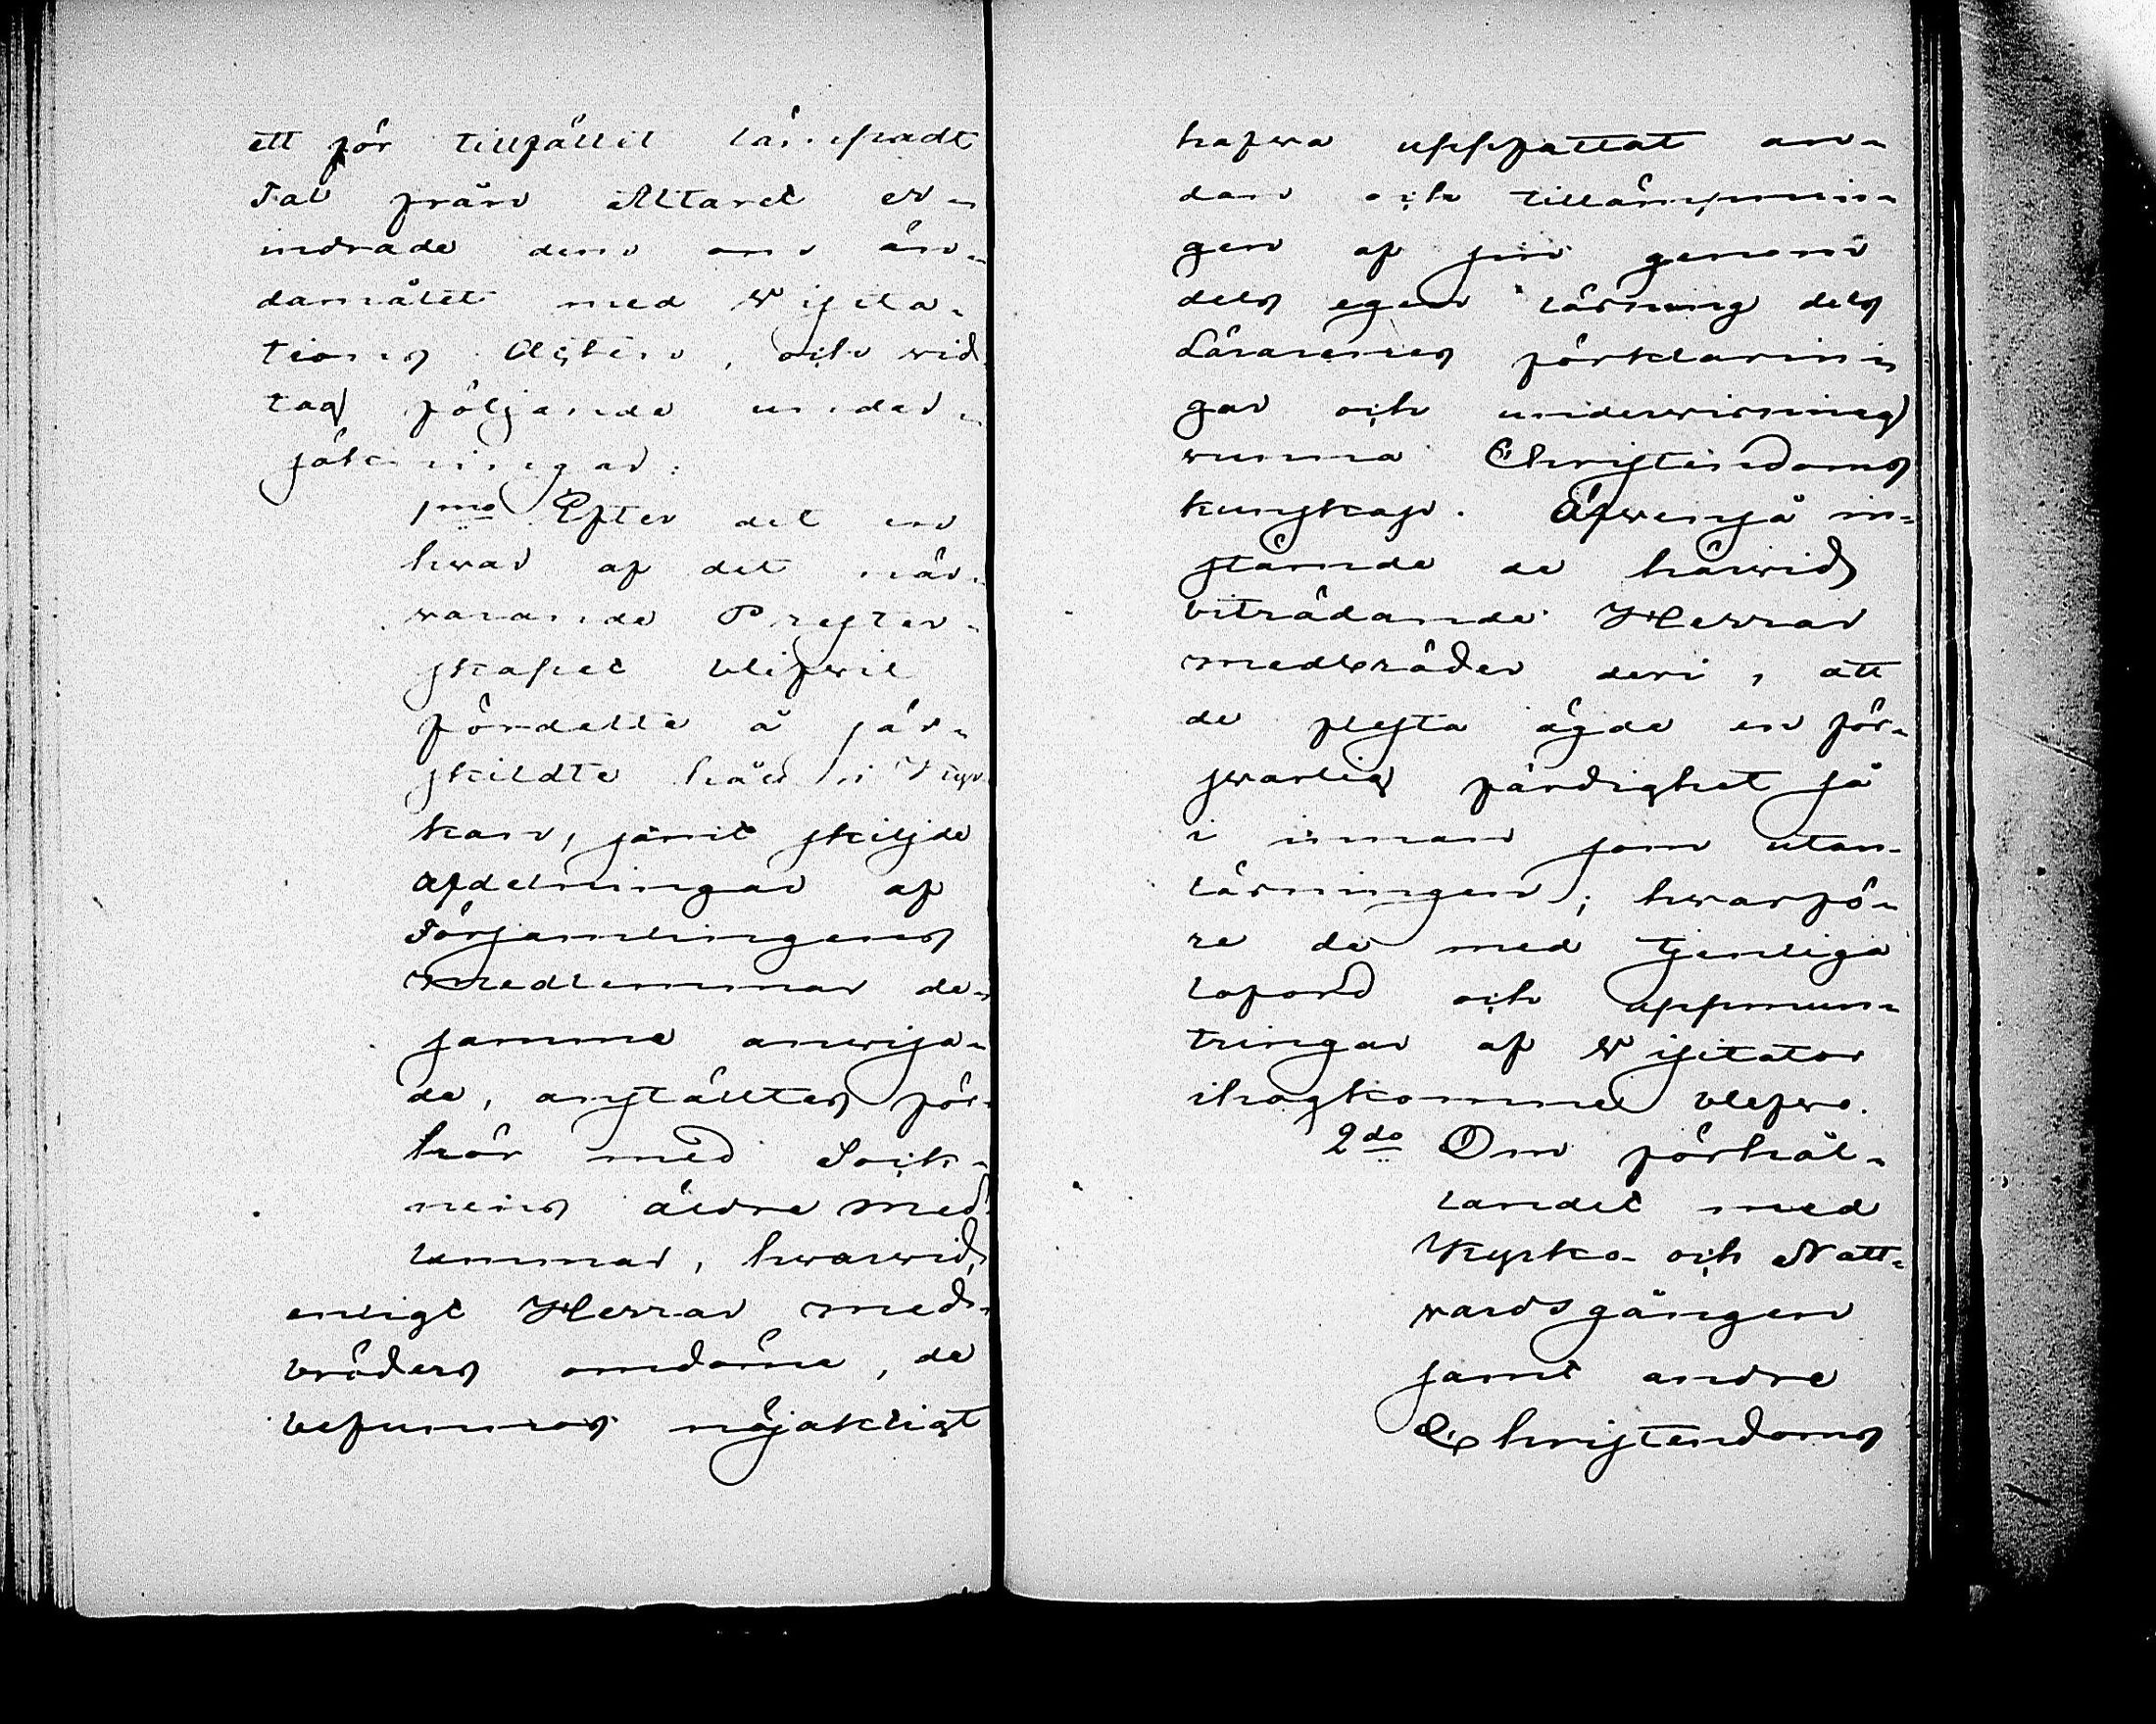 ett för tillfället lämpadt
Tal från Altaret er-
indrade dem om än-
damålet med Visita-
tions Acten, och vid-
tog följande under-
sökningar:
1mo Efter det en
hvar af det när-
varande Prester-
skapet blifvit
fördelte å sär-
skildte håll i Kyr-
kan, samt skiljde
afdelningar af
Församlingens
medlemmar de-
samma anvisa-
de, anställtes för-
hör med Sock-
nens äldre med-
lemmar, hvarvid,
enligt Herrar med-
bröders omdöme, de
befunnos nöjaktigt
hafva uppfattat an-
dan och tillämpnin-
gen af sin genom
dels egen läsning dels
Lärarenes förklarin-
gar och undervisning
vunna Christendoms
kunskap. Äfvenså in-
stämde de härvid
biträdande Herrar
medbröder deri, att
de flesta ägde en för-
svarlig färdighet så
i innan som utan-
läsningen; hvarfö-
re de med tjenliga
loford och uppmun-
tringar af Visitator
ihogkomne blefvo.
2do Om förhål-
landet med
Kyrko- och Natt-
vardsgången
samt andre
Christendoms